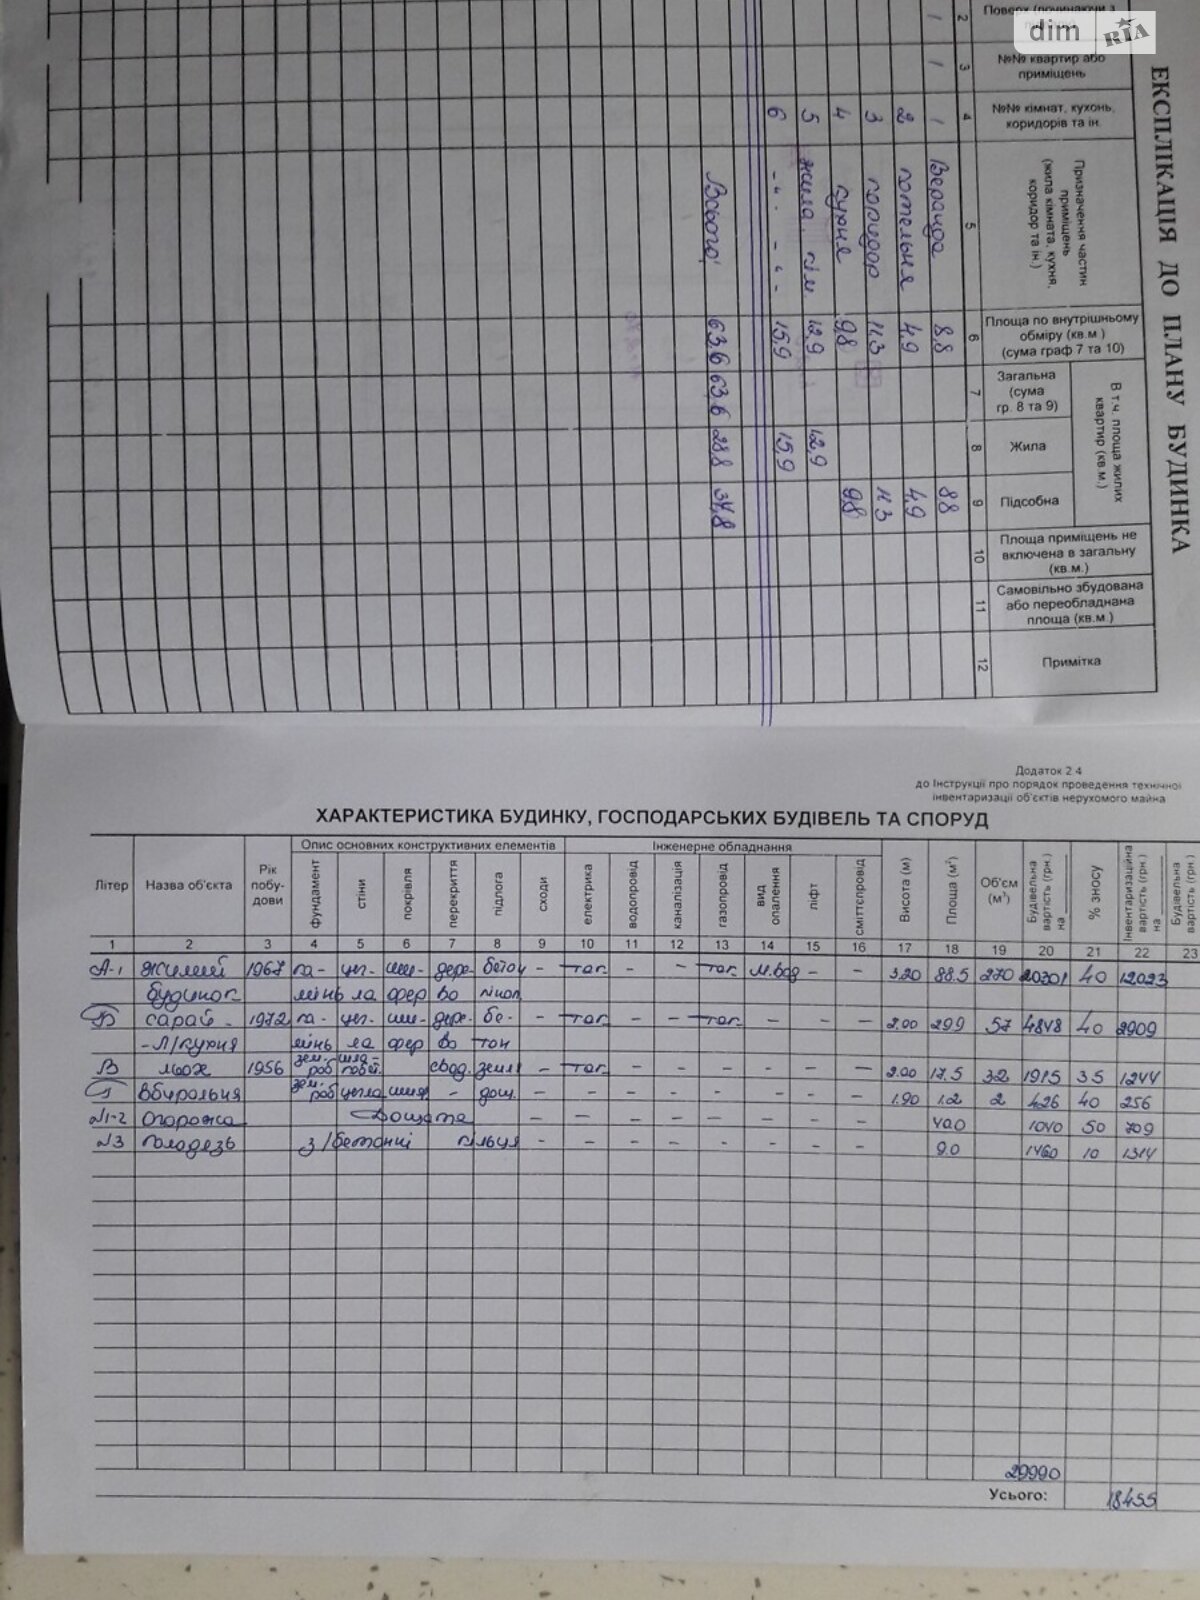 dim RIA
ЕКСПЛІКАЦІЯ ДО ПЛАНУ БУДИНКА
Поверх (починаючи з
№№ квартир або приміщень
№№ кімнат, кухонь, коридорів та ін.
Призначення частин приміщень (жила кімната, кухня, коридор та ін.)
Площа по внутрішньому обміру (кв.м.) (сума граф 7 та 10)
В т.ч. площа жилих квартир (кв.м.)
Загальна (сума гр. 8 та 9)
Жила
Підсобна
Площа приміщень не включена в загальну (кв.м.)
Самовільно збудована або переобладнана площа (кв.м.)
Примітка
2 3 4 5 6 7 8 9 10 11 12
1 1 1 Веранда 8,8 8,8
2 котельня 4,9 4,9
3 коридор 11,3 11,3
4 кухня 9,8 9,8
5 жила кім 12,9 12,9
6 -"- -"- 15,9 15,9
Всього: 63,6 63,6 28,8 34,8
Додаток 2.4
до Інструкції про порядок проведення технічної
інвентаризації об'єктів нерухомого майна
ХАРАКТЕРИСТИКА БУДИНКУ, ГОСПОДАРСЬКИХ БУДІВЕЛЬ ТА СПОРУД
Літер
Назва об'єкта
Рік побу-дови
Опис основних конструктивних елементів
фундамент
стіни
покрівля
перекриття
підлога
сходи
Інженерне обладнання
електрика
водопровід
каналізація
газопровід
вид опалення
ліфт
сміттєпровід
Висота (м)
Площа (м²)
Об'єм (м³)
Будівельна вартість (грн.) на
% зносу
Інвентаризаційна вартість (грн.) на
Будівельна вартість (грн.)
1 2 3 4 5 6 7 8 9 10 11 12 13 14 15 16 17 18 19 20 21 22 23
А-1 жилий 1967 ка- цег- ши- дере- бетон - - - - - 3.20 88.5 270 20301 40 12023
будинок мінь ла фер во лінол
Б сарай - 1972 ка- цег- ши- дере- бе- - - - - - - 2.00 29.9 57 4848 40 2909
- л/кухня мінь ла фер во тон
В льох 1956 звод. земля - - - - - - 2.00 17.5 32 1915 35 1244
Г Вбиральня цегла шиф - дощ. - - - - - - - - 1.90 1.2 2 426 40 256
№1-2 Огорожа Дощата - - - - - - - - 40.0 1040 50 709
№3 Колодязь з/бетонні кільця - - - - - - - - 9.0 1460 10 1314
29990
Усього: 18455